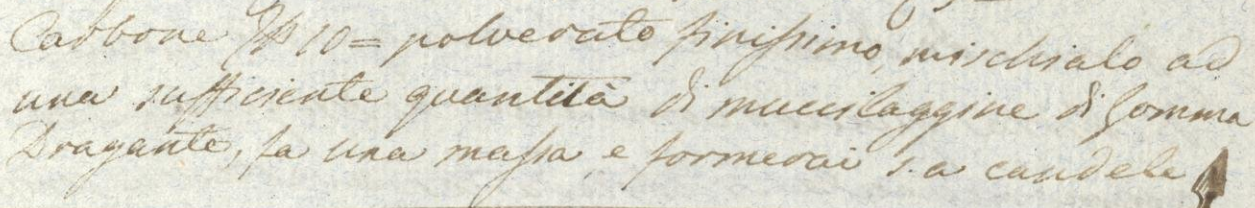 Carbone ℔ 10= polverato finissimo, mischialo ad
una sufficiente quantità di muccilaggine di Gomma
Dragante, fa una massa, e formerai s. a candele